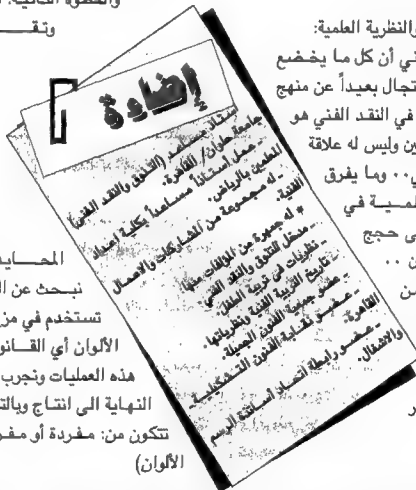 والخطوة الثانية
وتقـــــ
والنظرية العلمية:
ني أن كل ما يخضع
تجال بعيداً عن منهج
في النقد الفني هو
ين وليس له علاقة
ي.. وما يفرق
لمـيـة في
ى حجج
ن ..
ـن
إضاءة
أستاذ مساعد (التذوق والنقد الفني)
جامعة حلوان/ القاهرة.
- عمل أستاذاً مساعداً بكلية إعداد
المعلمين بالرياض.
- له مجموعة من المشاركات والأعمال
الفنية.
* له جمهرة من المؤلفات منها:
- مدخل للتذوق والنقد الفني.
- نظريات في تربية الطفل.
- تاريخ التربية الفنية ونظرياتها.
- عضو جمعية الفنون الجميلة.
- عضو نقابة الفنون التشكيلية.
القاهرة.
- عضو رابطة اتحاد أساتذة الرسم
والأشغال.
المحـــايد
نبـحث عن ال
تستخدم في مز
الألوان أي القـــانو
هذه العمليات ونجرب
النهاية الى انتـاج وبالت
تتكون من: مـفـردة أو مـفـر
الألوان)
ر